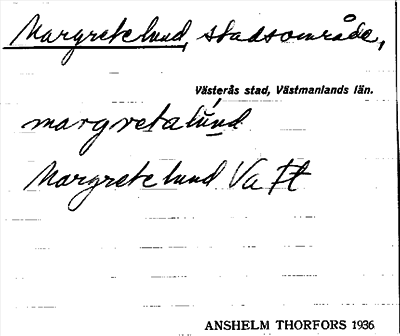 Margretelund, stadsområde,
Västerås stad, Västmanlands län.
margretalund
Margretelund Va Ft
ANSHELM THORFORS 1936